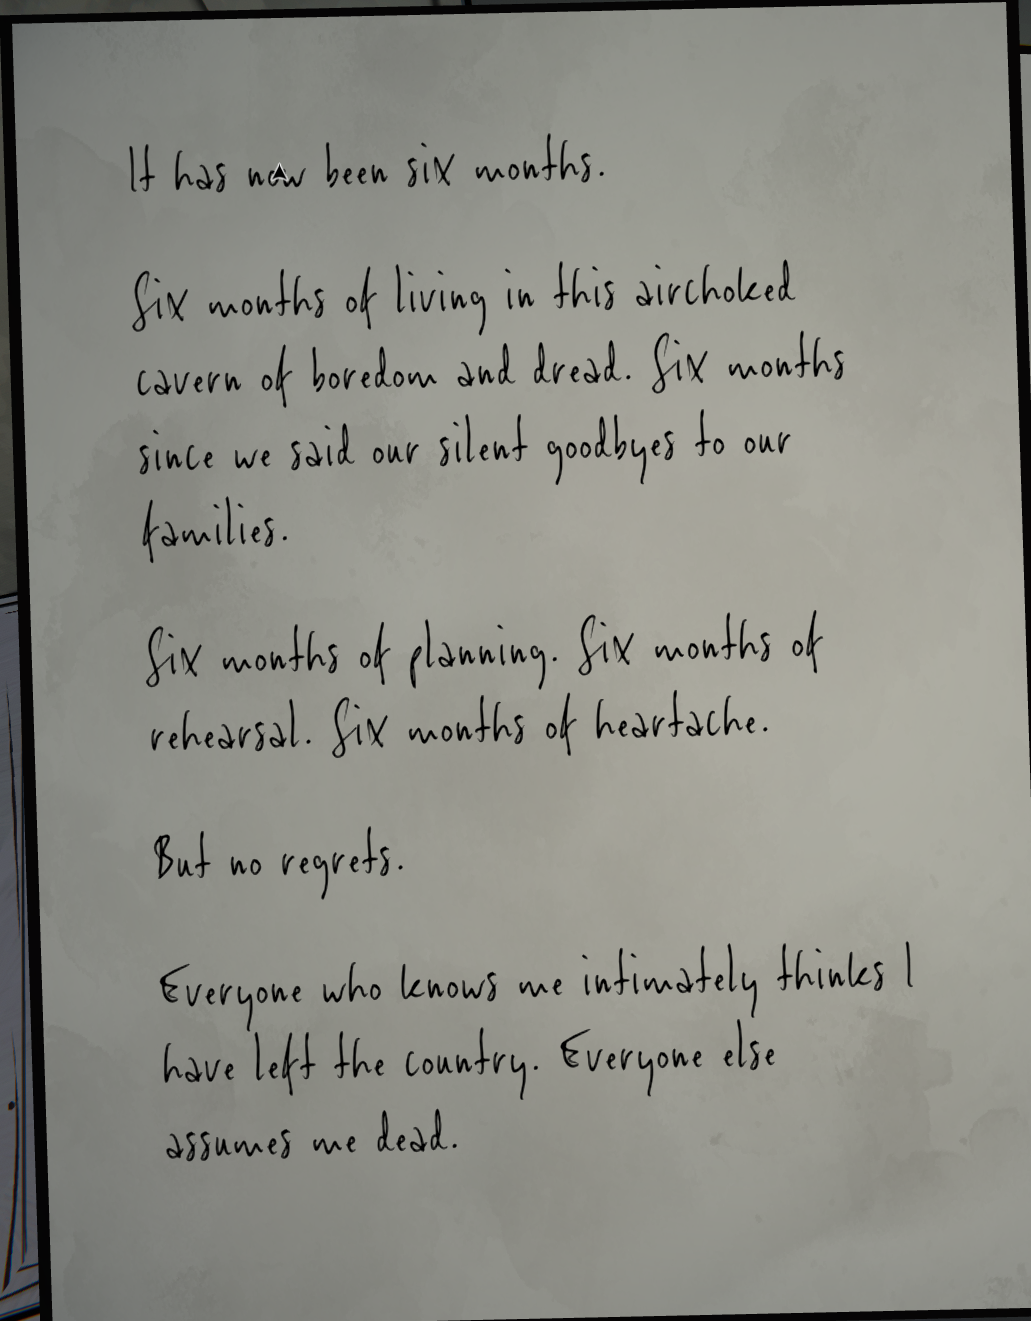 It has now been six months.
Six months of living in this airchoked
cavern of boredom and dread. Six months
since we said our silent goodbyes to our
families.
Six months of planning. Six months of
rehearsal. Six months of heartache.
But no regrets.
Everyone who knows me intimately thinks I
have left the country. Everyone else
assumes me dead.